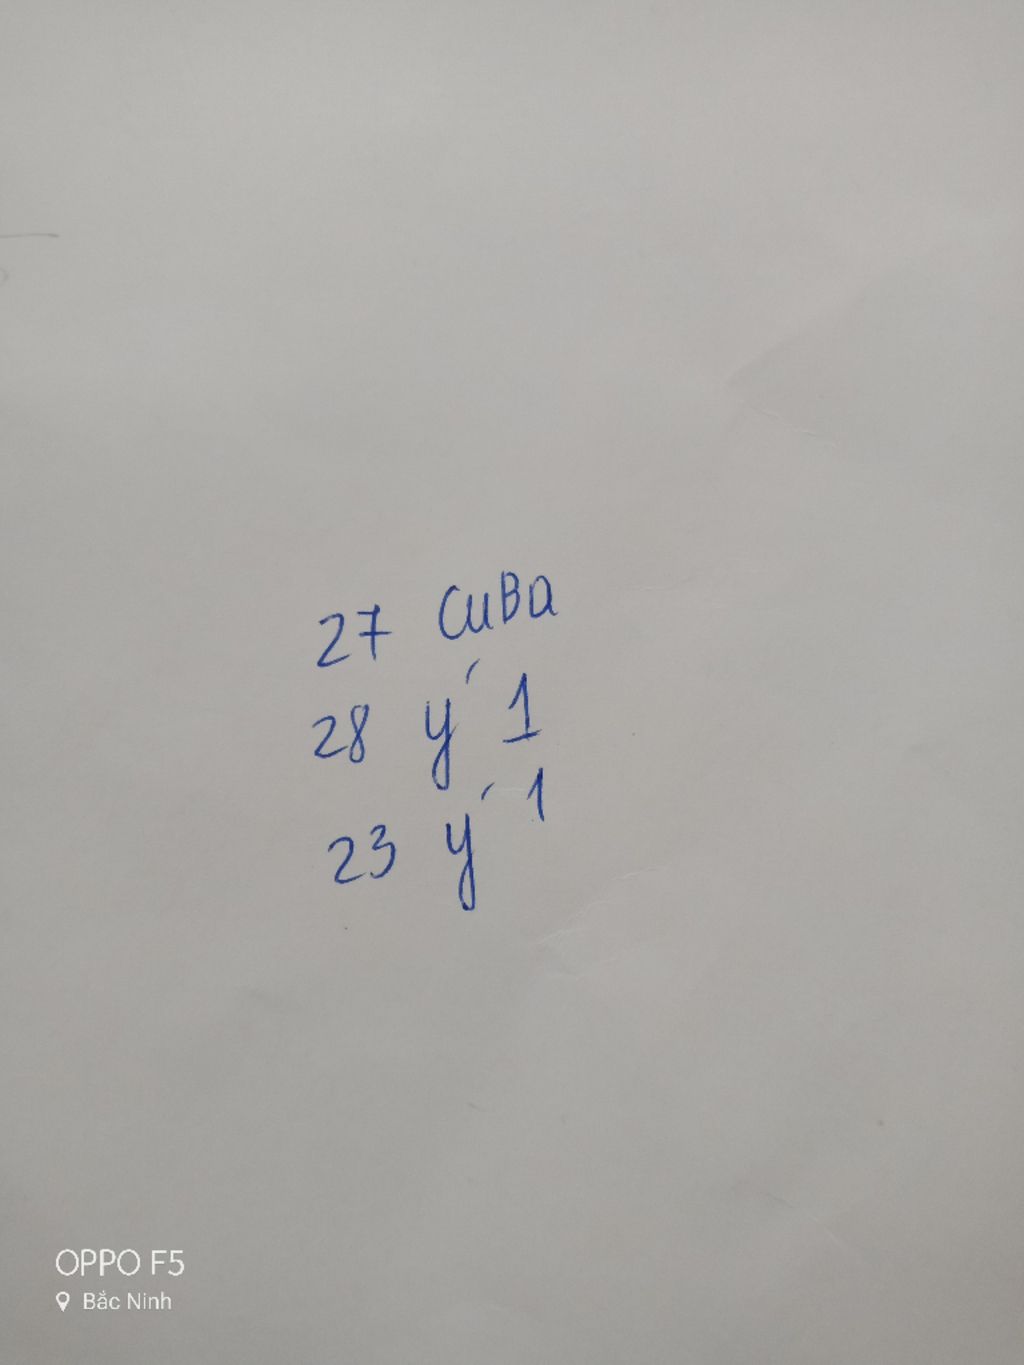 27 CuBa
28 ý 1
23 ý 1
OPPO F5
Bắc Ninh